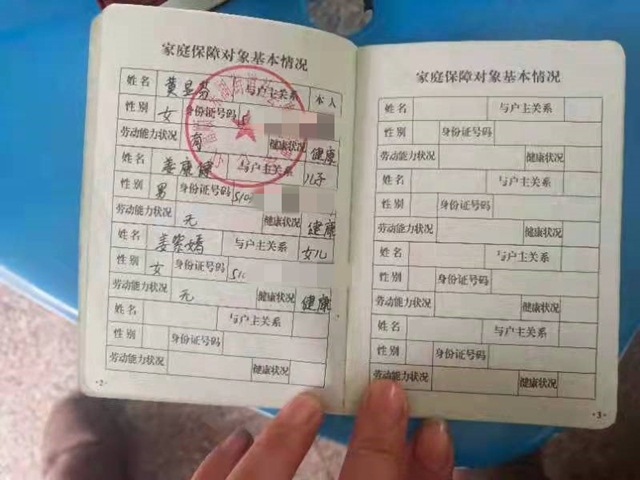 家庭保障对象基本情况
姓名 黄显 与户主关系 本人
性别 女 身份证号码 5
劳动能力状况 有 健康状况 健康
姓名 姜康健 与户主关系 儿子
性别 男 身份证号码 510
劳动能力状况 无 健康状况 健康
姓名 姜紫嫣 与户主关系 女儿
性别 女 身份证号码 51
劳动能力状况 无 健康状况 健康
姓名 与户主关系
性别 身份证号码
劳动能力状况 健康状况
-2-
家庭保障对象基本情况
姓名 与户主关系
性别 身份证号码
劳动能力状况 健康状况
姓名 与户主关系
性别 身份证号码
劳动能力状况 健康状况
姓名 与户主关系
性别 身份证号码
劳动能力状况 健康状况
姓名 与户主关系
性别 身份证号码
劳动能力状况 健康状况
-3-